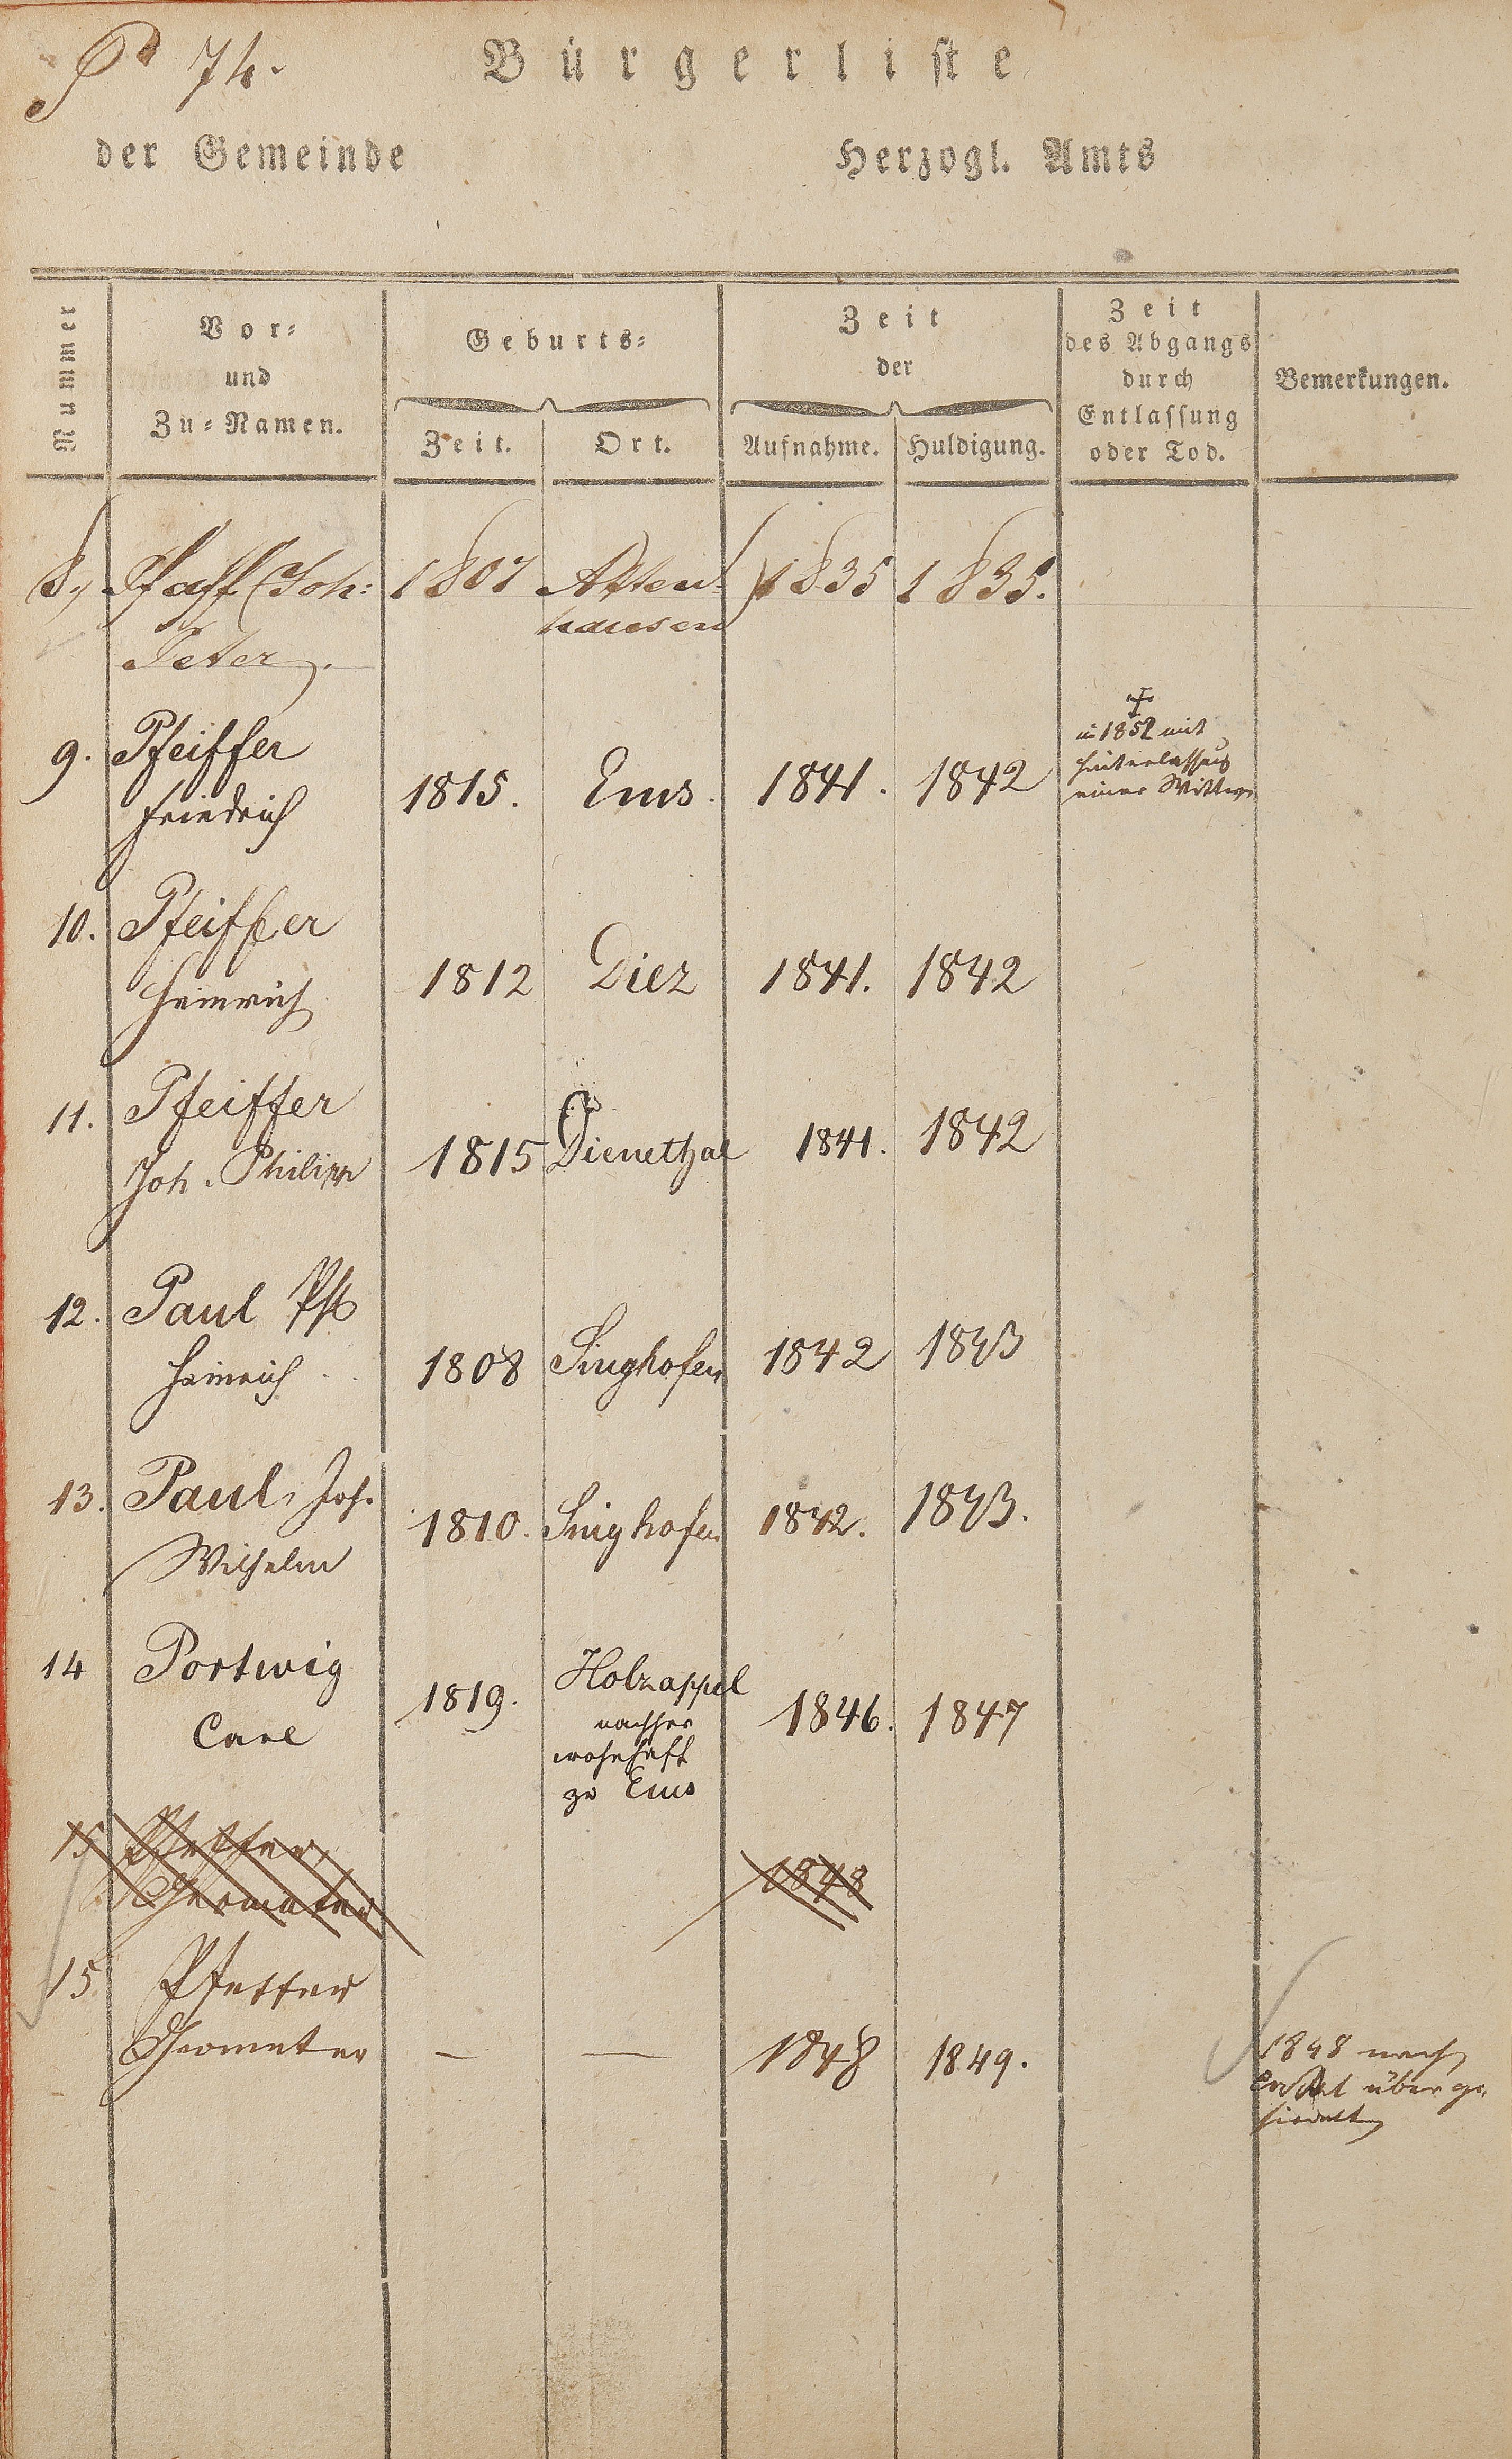 P 74.
Bürgerliste
der Gemeinde Herzogl. Amts
Nummer
Vor-
und
Zu-Namen.
Geburts-
Zeit. Ort.
Zeit
der
Aufnahme. Huldigung.
Zeit
des Abgangs
durch
Entlassung
oder Tod.
Bemerkungen.
8, Pfaff (Joh: 1807 Atten- 1835 1835.
hausen
Peter).
9. Pfeiffer
Friedrich 1815. Ems. 1841. 1842
†
in 1852 mit
Hinterlassung
einer Wittwe
10. Pfeiffer
Heinrich 1812 Diez 1841. 1842
11. Pfeiffer
Joh. Philipp 1815 Dienethal 1841. 1842
12. Paul
Heinrich 1808 Singhofen 1842 1843
13. Paul, Joh.
Wilhelm 1810. Singhofen 1842. 1843.
14 Portwig
Carl 1819. Holzappel 1846. 1847
nachher
wohnhaft
zu Ems
15 1848
15 Pfeffer
Geometer — — 1848 1849.
1848 nach
Cassel überge-
siedelt